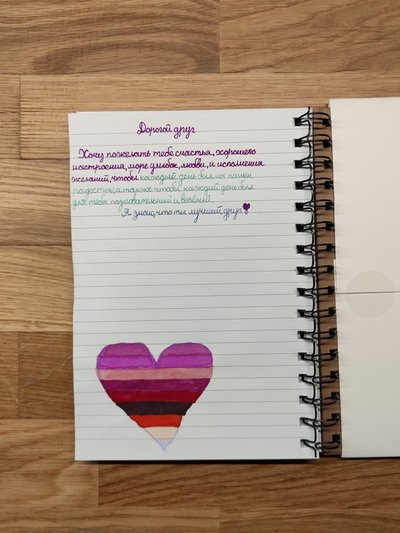 Дорогой друг
Хочу пожелать тебе счастья, хорошего
настроения, море улыбок, любви, и исполнения
желаний, чтобы каждый день был наполнен
радостью, а также чтобы каждый день был
для тебя познавательный и весёлый.
Я знаю, что ты лучший друг